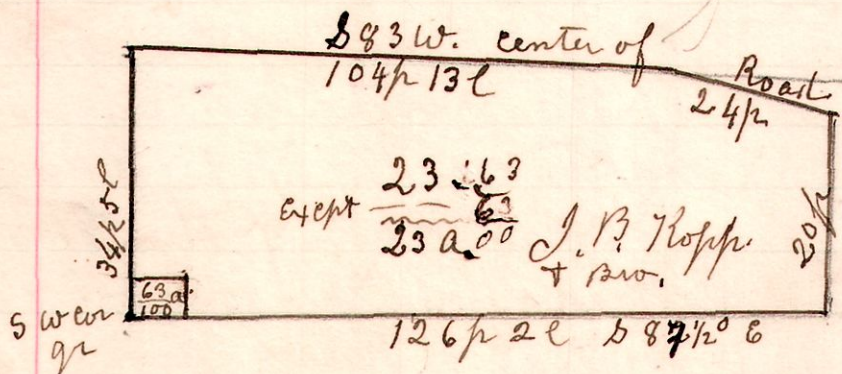 S 83 W. center of Road
104p 13l
24p
34p 5l
23.63
Except 63
23 a. 00
J. B. Kopp.
+ Bro.
20p
63a
100
S W cor
qr
126p 2l S 87 1/2° E